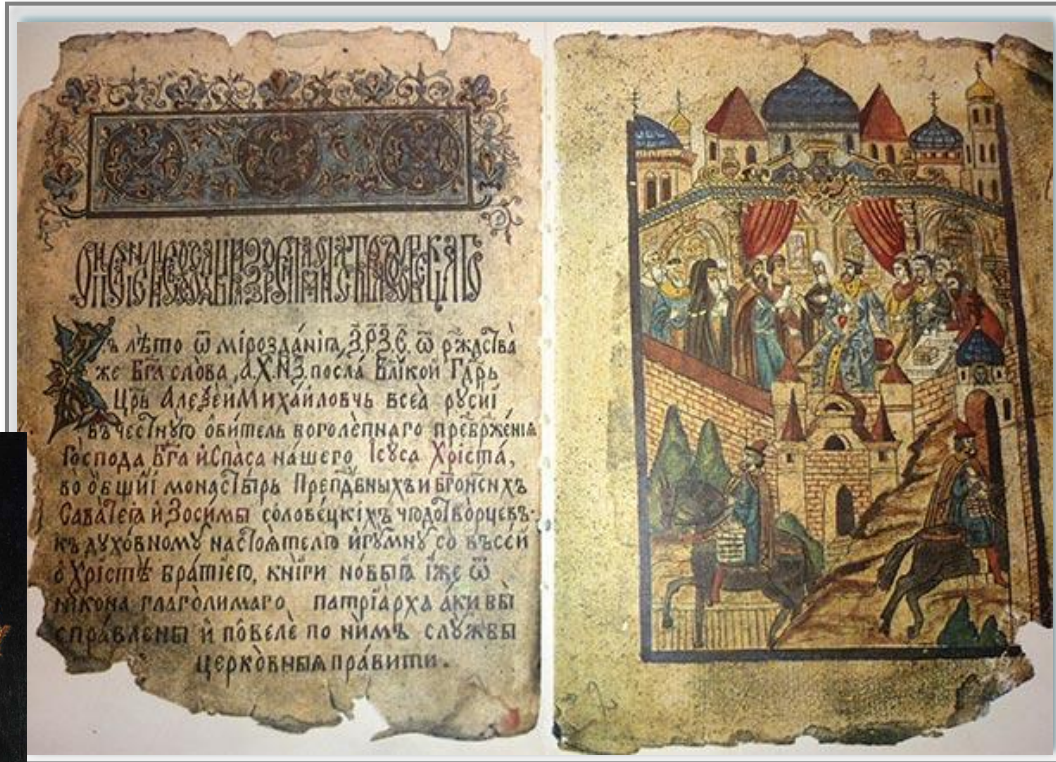 лѣто ѿ мірозданіꙗ, ЗРЗЄ, ѿ рждства̀
же Бга слова, аХНЗ, посла Влікой Гдрь
Црь Алеѯей Михайловчь всеа русиі
въ честную обитель боголепнаго преѡбрженія
Господа Бга и Спаса нашего Ісуса Хріста,
во обшиі монастырь
и Зосимы соловецкіхъ чюдотворцевъ
къ духовному настоятелю игумну со
о Хрістѣ братіею, кніги новыꙗ іже ѿ
никона глаголимаго патріарха аки вы
справлены и повеле по нимъ службы
церковныя правити.
2